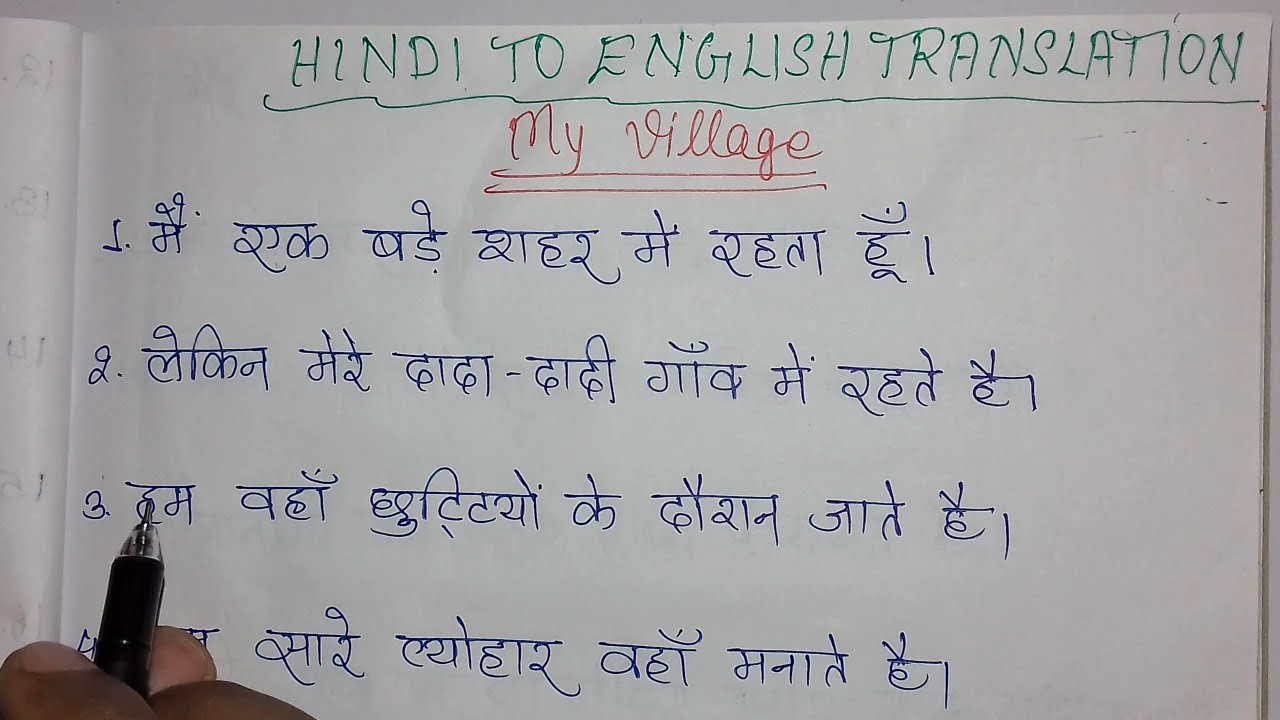 HINDI TO ENGLISH TRANSLATION
My Village
1. मैं एक बड़े शहर में रहता हूँ।
2. लेकिन मेरे दादा-दादी गाँव में रहते है।
3. हम वहाँ छुट्टियों के दौरान जाते है।
सारे त्योहार वहाँ मनाते है।